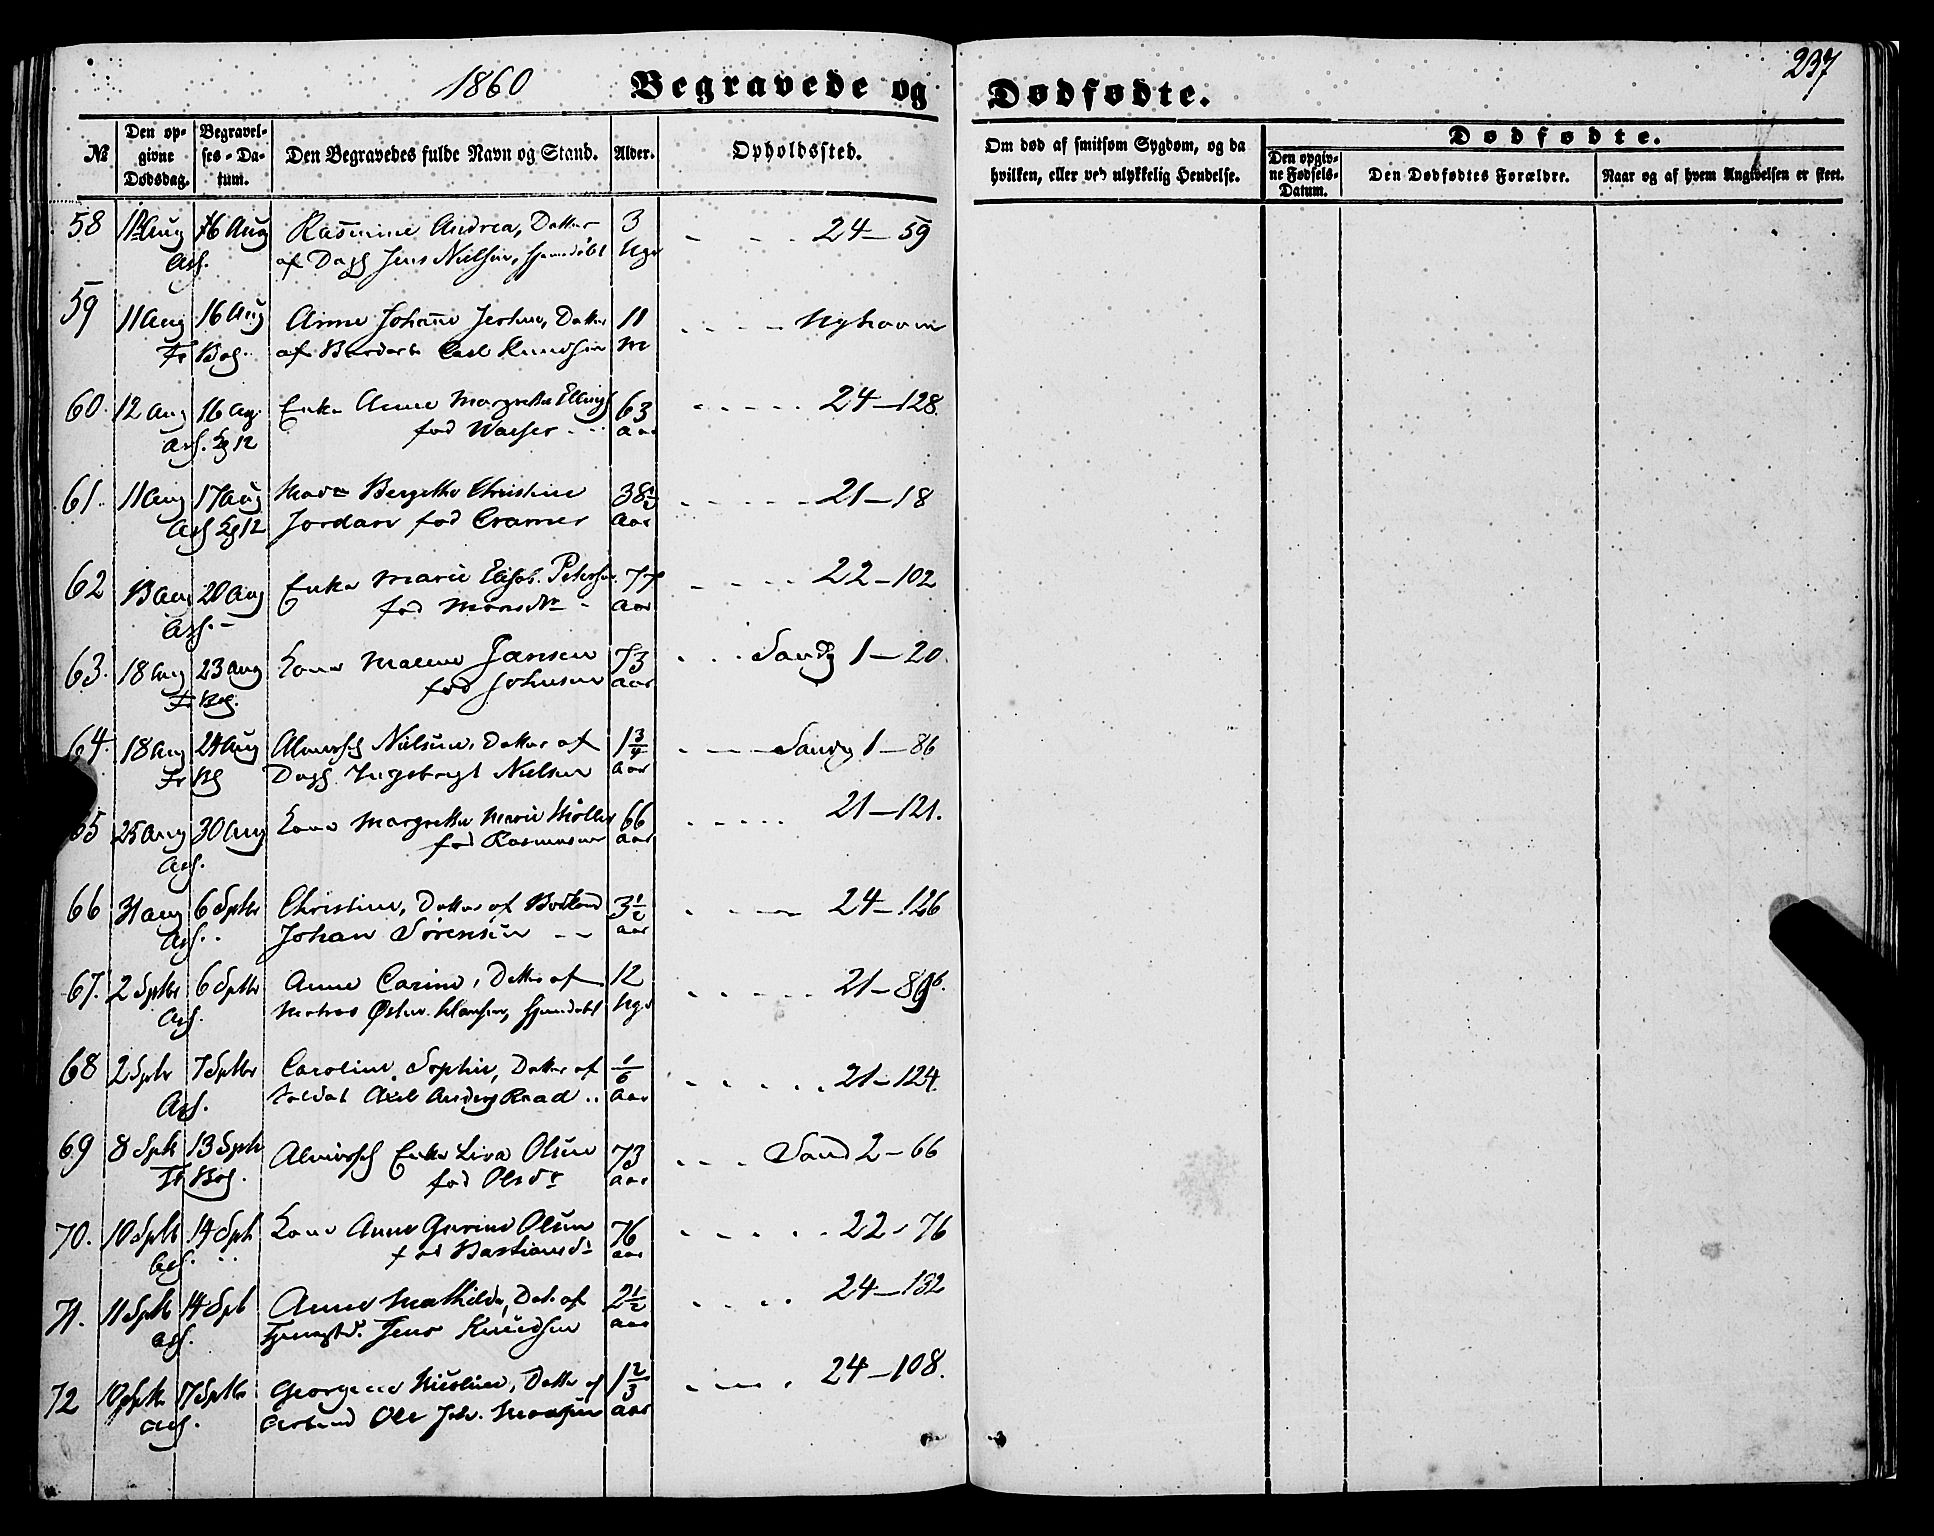 1860 Begravede og Dødfødte. 237
№ Den opgivne Dødsdag. Begravelses-Datum. Den Begravedes fulde Navn og Stand. Alder. Opholdssted. Om død af smitsom Sygdom, og da hvilken, eller ved ulykkelig Hendelse. Dødfødte. Den opgivne Fødsels-Datum. Den Dødfødtes Forældre. Naar og af hvem Angivelsen er skeet.
58 Aug 16 Aug Rasmine Andrea, Datter 3 24-59
af Dagl Jens Nielsen, hjemdøbt Uger
59 11 Aug 16 Aug Anne Johanne Datter 11 Nyhavn
Fr Bog. af Carl Knudsen M
60. 12 Aug 16 Aug. Enke Anne Margrethe 63 24-128.
Ass. Lg 12 fød Aar
61. 11 Aug 17 Aug Mad Bergethe Christine 38½ 21-18
Ass Lg 12 Jordan fød Cramer Aar
62 13 Aug 20 Aug Enke Marie Elisab. Petersen 77 22-102
Ass. fød Aar
63. 18 Aug 23 Aug Kone Malene Jansen 73 1-20.
Fr Bog. fød Johnsen Aar
64. 18 Aug 24 Aug Nielsine, Datter af 1¾ 1-86
Fr Bg Dagl Ingebregt Nielsen Aar
65 25 Aug 30 Aug Kone Margrethe Marie Møller 66 21-121.
Ass. fød Rasmussen Aar
66 31 Aug 6 Sptbr Christine, Datter af 3½ 24-126
Ass. Johan Sørensen Aar
67. 2 Sptbr 6 Sptbr Anne Carine, Datter af 12 21-
Ass. Matros hjemdøbt Uger
68 2 Sptbr 7 Sptbr Caroline Sophie, Datter af 1/6 21-124.
Ass. Soldat Axel Anders Raad Aar
69 8 Sptb 13 Sptb Enke Liva Olsen 73 Sand 2-66
Fr Bog. fød Olsdr Aar
70. 10 Sptb 14 Sptb Kone Anne Gurine Olsen 76 22-76
Ass. fød Bastiansdr Aar
71. 11 Sptb 14 Sptb Anne Mathilde, Dat. af 2½ 24-132
Ass. Jens Knudsen Aar
72 10 Sptb 17 Sptbr Georgine Nicoline, Datter af 1⅔ 24-108.
Ass. Arbmd Ole Joh. Aar